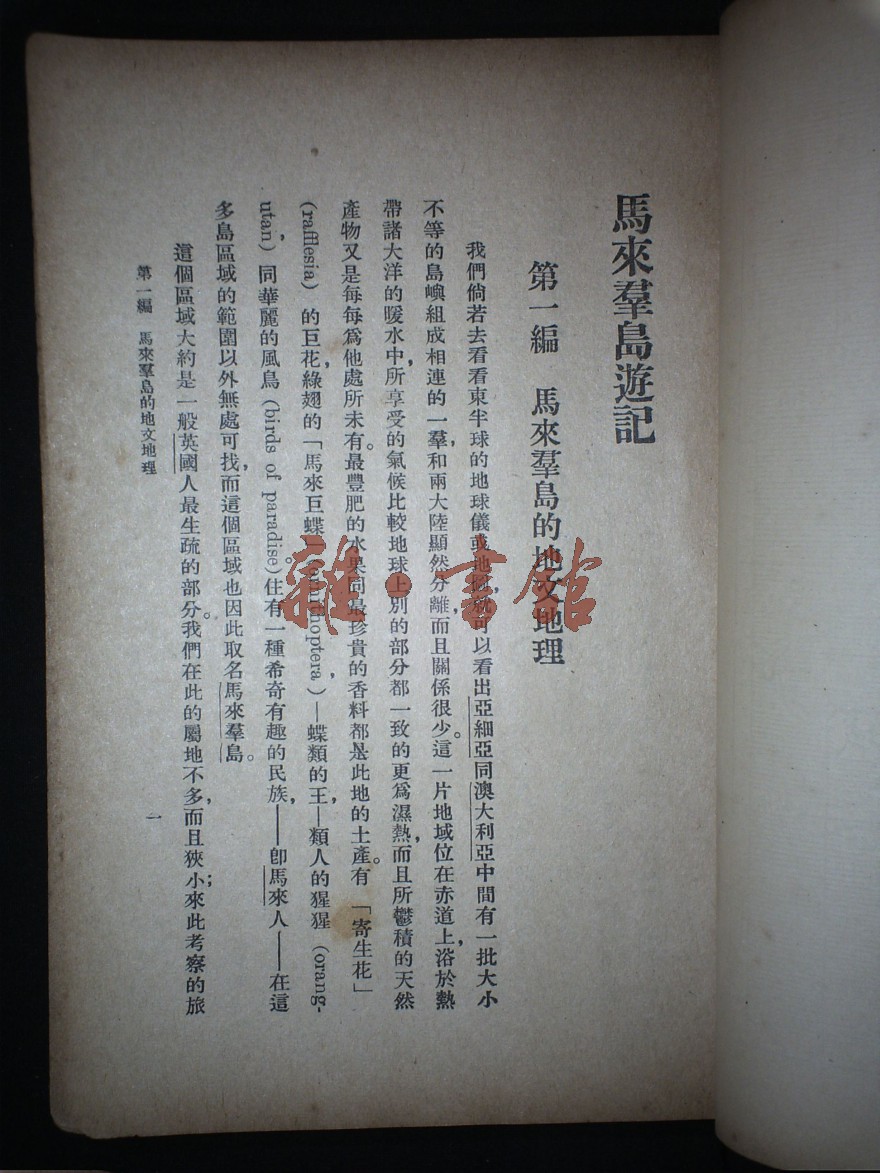 馬來羣島遊記
第一編　馬來羣島的地文地理
我們倘若去看看東半球的地球儀或地圖，就可以看出亞細亞同澳大利亞中間有一批大小
不等的島嶼組成相連的一羣，和兩大陸顯然分離，而且關係很少。這一片地域位在赤道上，浴於熱
帶諸大洋的暖水中，所享受的氣候比較地球上別的部分都一致的更爲濕熱，而且所鬱積的天然
產物又是每每爲他處所未有。最豐肥的水果同最珍貴的香料都是此地的土產。有「寄生花」
(rafflesia) 的巨花，綠翅的「馬來巨蝶」(ornithoptera)—蝶類的王—類人的猩猩 (orang-
utan)，同華麗的風鳥 (birds of paradise)。住有一種希奇有趣的民族，——卽馬來人——在這
多島區域的範圍以外無處可找，而這個區域也因此取名馬來羣島。
這個區域大約是一般英國人最生疏的部分。我們在此的屬地不多，而且狹小；來此考察的旅
第一編　馬來羣島的地文地理
一
雜·書館